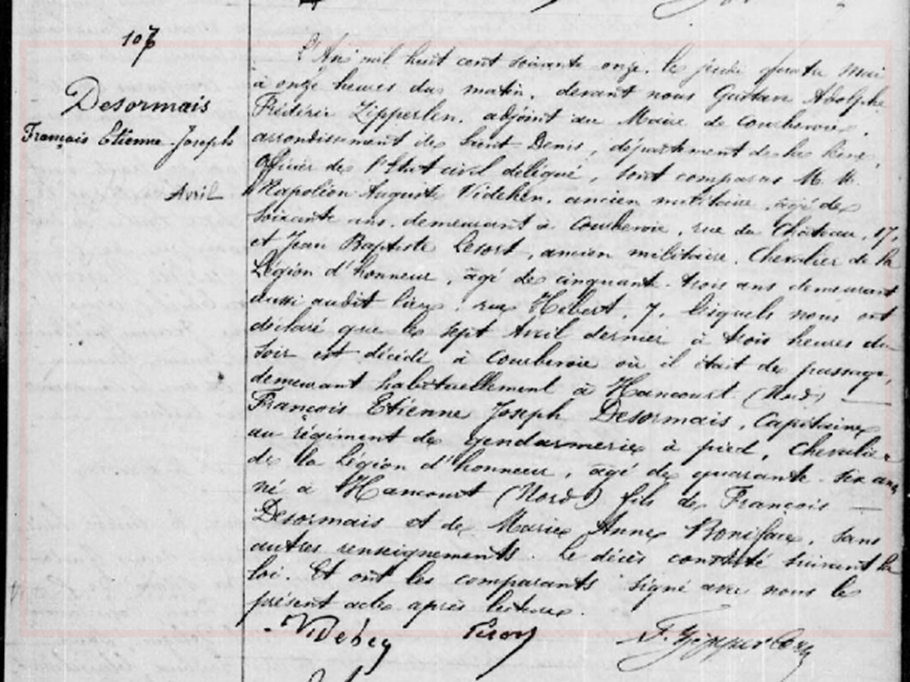 107
Desormais
François Etienne Joseph
Avril
L'An mil huit cent soixante onze, le jeudi quatre Mai
à onze heures du matin, devant nous Gustave Adolphe
Frédéric Zipperlen, adjoint au Maire de Courbevoie,
arrondissement de Saint Denis, département de la Seine,
Officier de l'Etat civil délégué, sont comparus M.M.
Napoléon Auguste ancien militaire, âgé de
soixante ans, demeurant à Courbevoie, rue du Château, 17,
et Jean Baptiste Lesort, ancien militaire, Chevalier de la
Légion d'honneur, âgé de cinquante trois ans demeurant
aussi audit lieu, rue Hébert, 7, lesquels nous ont
déclaré que le sept Avril dernier à trois heures du
soir est décédé à Courbevoie où il était de passage,
demeurant habituellement à Hancourt (Nord)
François Etienne Joseph Desormais, Capitaine
au régiment de gendarmerie à pied, Chevalier
de la Légion d'honneur, âgé de quarante six ans
né à Hancourt (Nord) fils de François
Desormais et de Marie Anne Boniface, sans
autres renseignements. Le décès constaté suivant la
loi. Et ont les comparants signé avec nous le
présent acte après lecture.